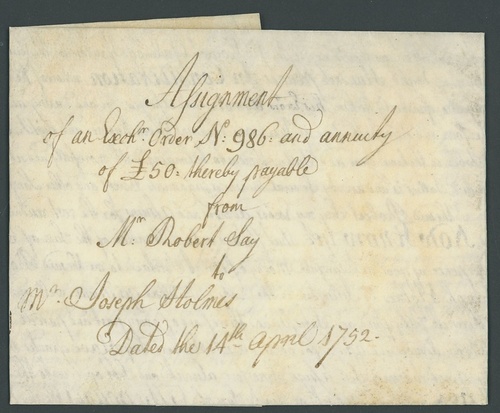 Assignment
of an Exchr. Order No: 986: and annuity
of £50: thereby payable
from
Mr. Robert Jay
to
Mr. Joseph Holmes
Dated the 14th April 1752.